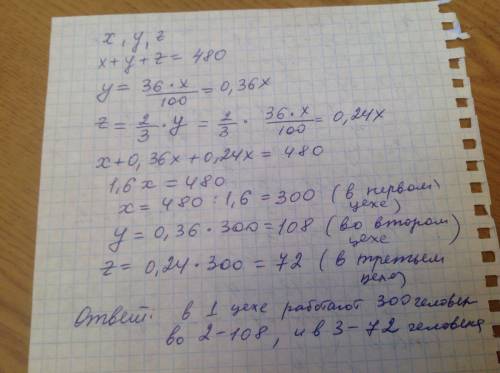 x, y, z
x+y+z = 480
y = 36·x/100 = 0,36x
z = 2/3·y = 2/3·36·x/100 = 0,24x
x+0,36x+0,24x = 480
1,6x = 480
x = 480:1,6 = 300 (в первом цехе)
y = 0,36·300 = 108 (во втором цехе)
z = 0,24·300 = 72 (в третьем цехе)
Ответ: в 1 цехе работают 300 человек
во 2-108, и в 3-72 человека